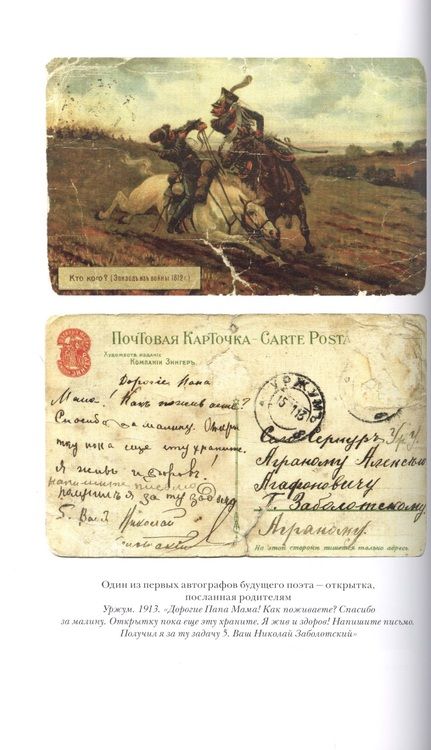 Кто кого? (Эпизодъ изъ войны 1812 г.)
ПОЧТОВАЯ КАРТОЧКА - CARTE POSTA
Художеств. издание
КОМПАНІИ ЗИНГЕРЪ.
Дорогіе Папа
Мама! Какъ поживаете?
Спасибо за малину. Открытку пока еще эту храните.
Я живъ и здоровъ!
напишите письмо
получилъ я за ту задачу
5. Вашъ Николай
УРЖУМЪ
15 13
Село Сернуръ
Аграному Алексѣю
Агафоновичу
Г. Заболотскому.
Аграному.
На этой сторонѣ пишется только адресъ.
Один из первых автографов будущего поэта — открытка,
посланная родителям
Уржум. 1913. «Дорогие Папа Мама! Как поживаете? Спасибо
за малину. Открытку пока еще эту храните. Я жив и здоров! Напишите письмо.
Получил я за ту задачу 5. Ваш Николай Заболотский»